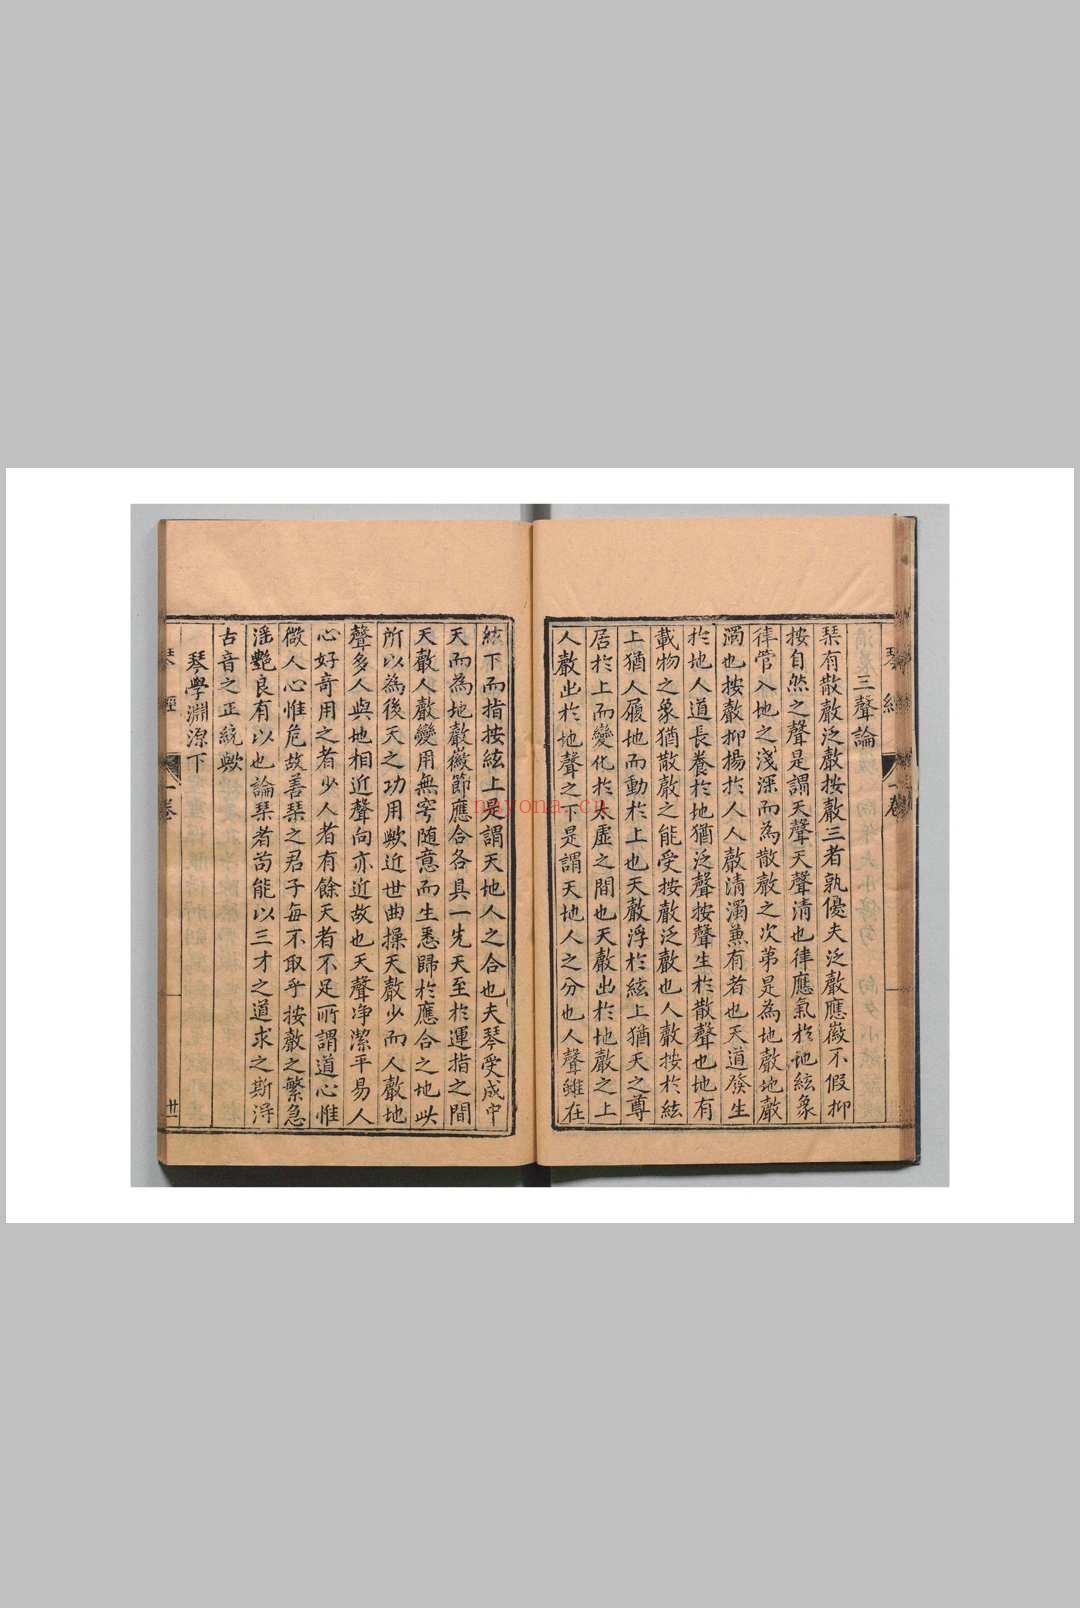 三聲論
琹有散聲泛聲按聲三者孰優夫泛聲應徽不假抑
按自然之聲是謂天聲天聲清也律應氣於地絃象
律管入地之淺深而為散聲之次苐是為地聲地聲
濁也按聲抑揚於人人聲清濁兼有者也天道發生
於地人道長養於地猶泛聲按聲生於散聲也地有
載物之象猶散聲之能受按聲泛聲也人聲按於絃
上猶人履地而動於上也天聲浮於絃上猶天之尊
居於上而變化於太虛之間也天聲出於地聲之上
人聲出於地聲之下是謂天地人之分也人聲雖在
琴經
一卷
絃下而指按絃上是謂天地人之合也夫琴受成中
天而為地聲徽節應合各具一先天至於運指之間
天聲人聲變用無窮随意而生悉歸於應合之地此
所以為後天之功用歟近世曲操天聲少而人聲地
聲多人與地相近聲向亦近故也天聲净潔平易人
心好奇用之者少人者有餘天者不足所謂道心惟
微人心惟危故善琹之君子每不取乎按聲之繁急
滛艷良有以也論琹者苟能以三才之道求之斯淂
古音之正統歟
琴學淵源下
琴經
一卷
廿一
nayona.cn